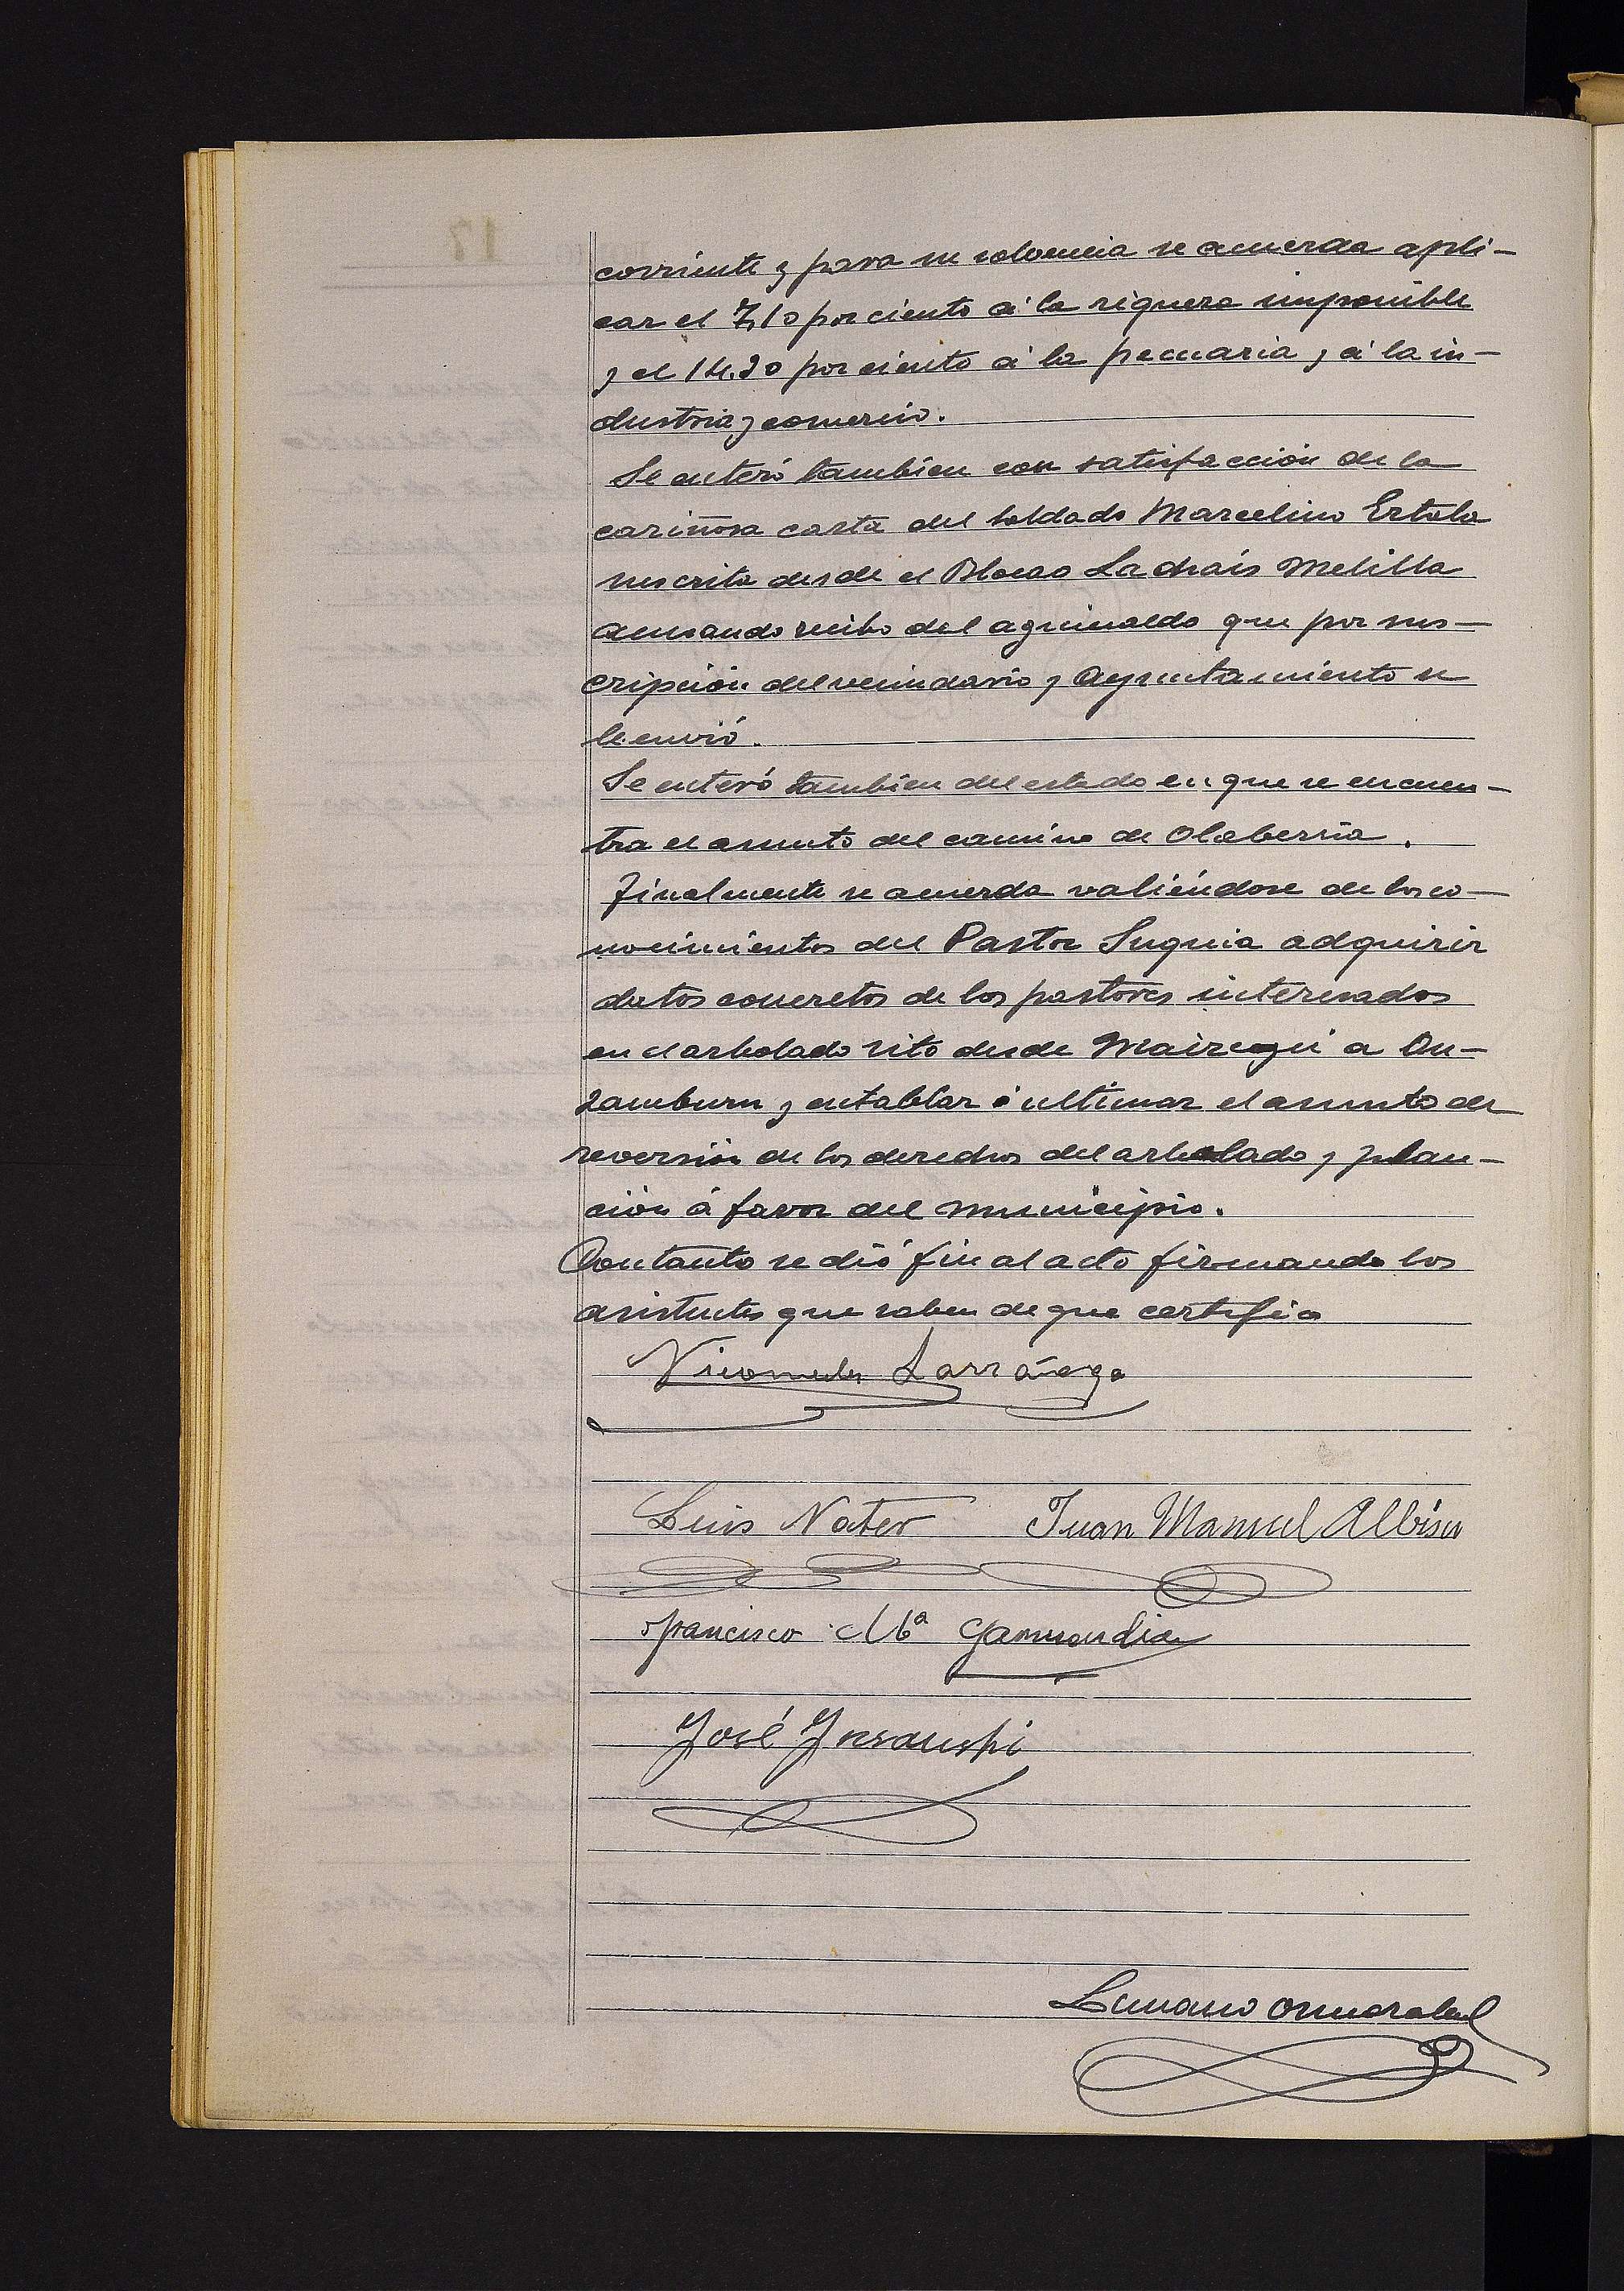 corriente y para su solvencia se acuerda apli-
car el 7,10 por ciento á la riqueza imponible
y el 14.20 por ciento á la pecuaria y á la in-
dustria y comercio.
Se enteró tambien con satisfacción de la
cariñosa carta del soldado Marcelino Estala
suscrita desde el Blocao Ladrais Melilla
acusando recibo del aguinaldo que por sus-
cripción del vecindario y Ayuntamiento se
le envió.
Se enteró tambien del estado en que se encuen-
tra el asunto del camino de Olaberria.
Finalmente se acuerda valiéndose de los co-
nocimientos del Pastor Suquia adquirir
datos concretos de los pastores interesados
en el arbolado sito desde Mairuegui a On-
zamburu y entablar i ultimar el asunto de
reversión de los derechos del arbolado y plan-
ción á favor del municipio.
Con tanto se dió fin al acto firmando los
asistentes que saben de que certifico
Nicomedes Larrañaga
Luis Nater Juan Manuel Albisu
Francisco Mª Garmendia
José Insausti
Luciano